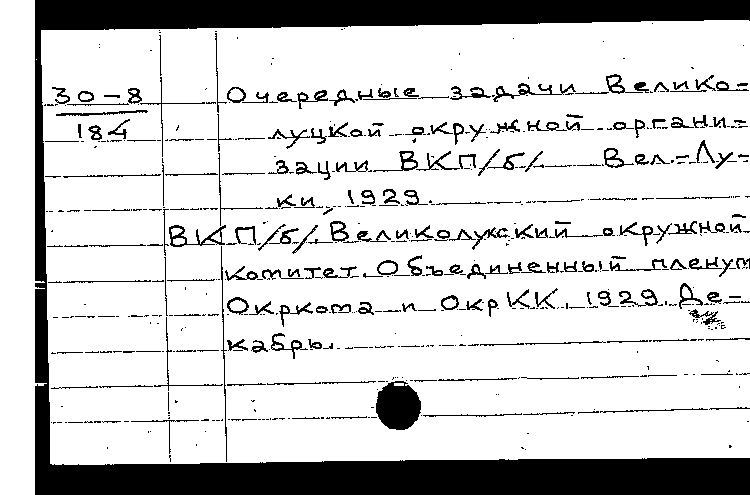 30-8
184
Очередные задачи Велико=
луцкой окружной органи=
зации ВКП/б/. Вел.=Лу=
ки, 1929.
ВКП/б/. Великолукский окружной
комитет. Объединенный пленум
Окркома и ОкрКК. 1929. Де=
кабрь.